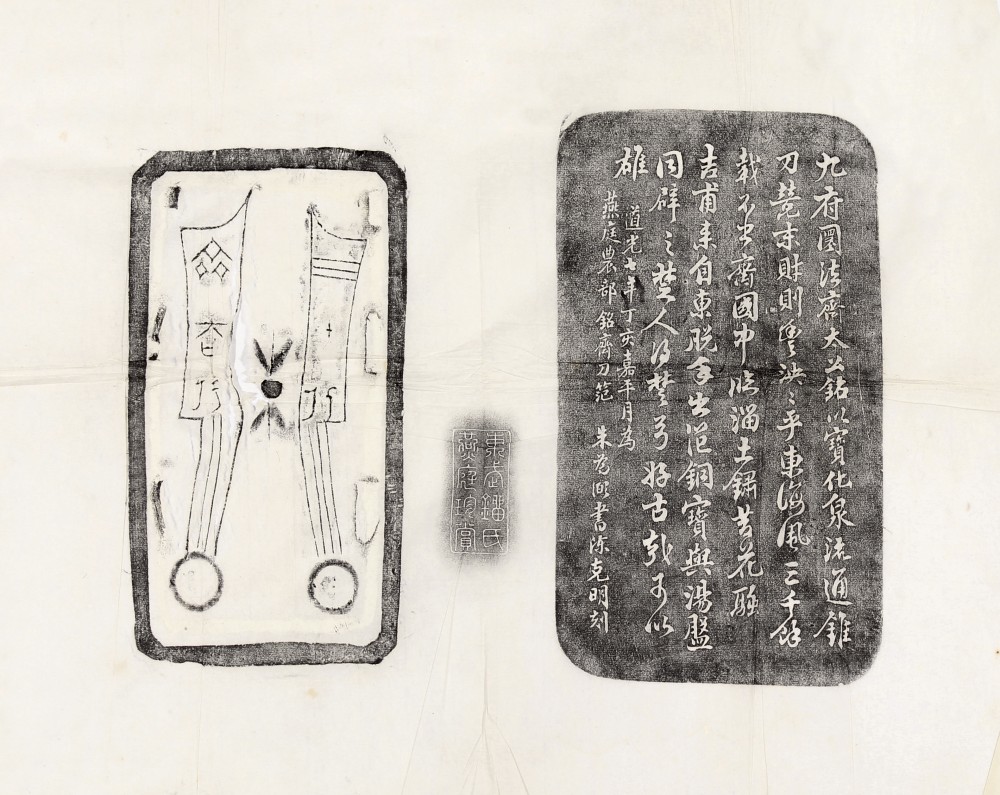 九府圜法齊太公銘以寶化泉流通錐
刀競末財則豐泱〻乎東海風三千餘
載不出齊國中臨淄土鏽苔花融
吉甫來自東脫手出笵銅寶與湯盤
同辟之楚人得楚弓好古可以
雄
道光七年丁亥嘉平月為
燕庭農部銘齊刀笵 朱為弼書陳克明刻
東武鐂氏
燕庭珍賞
十化
齊去化